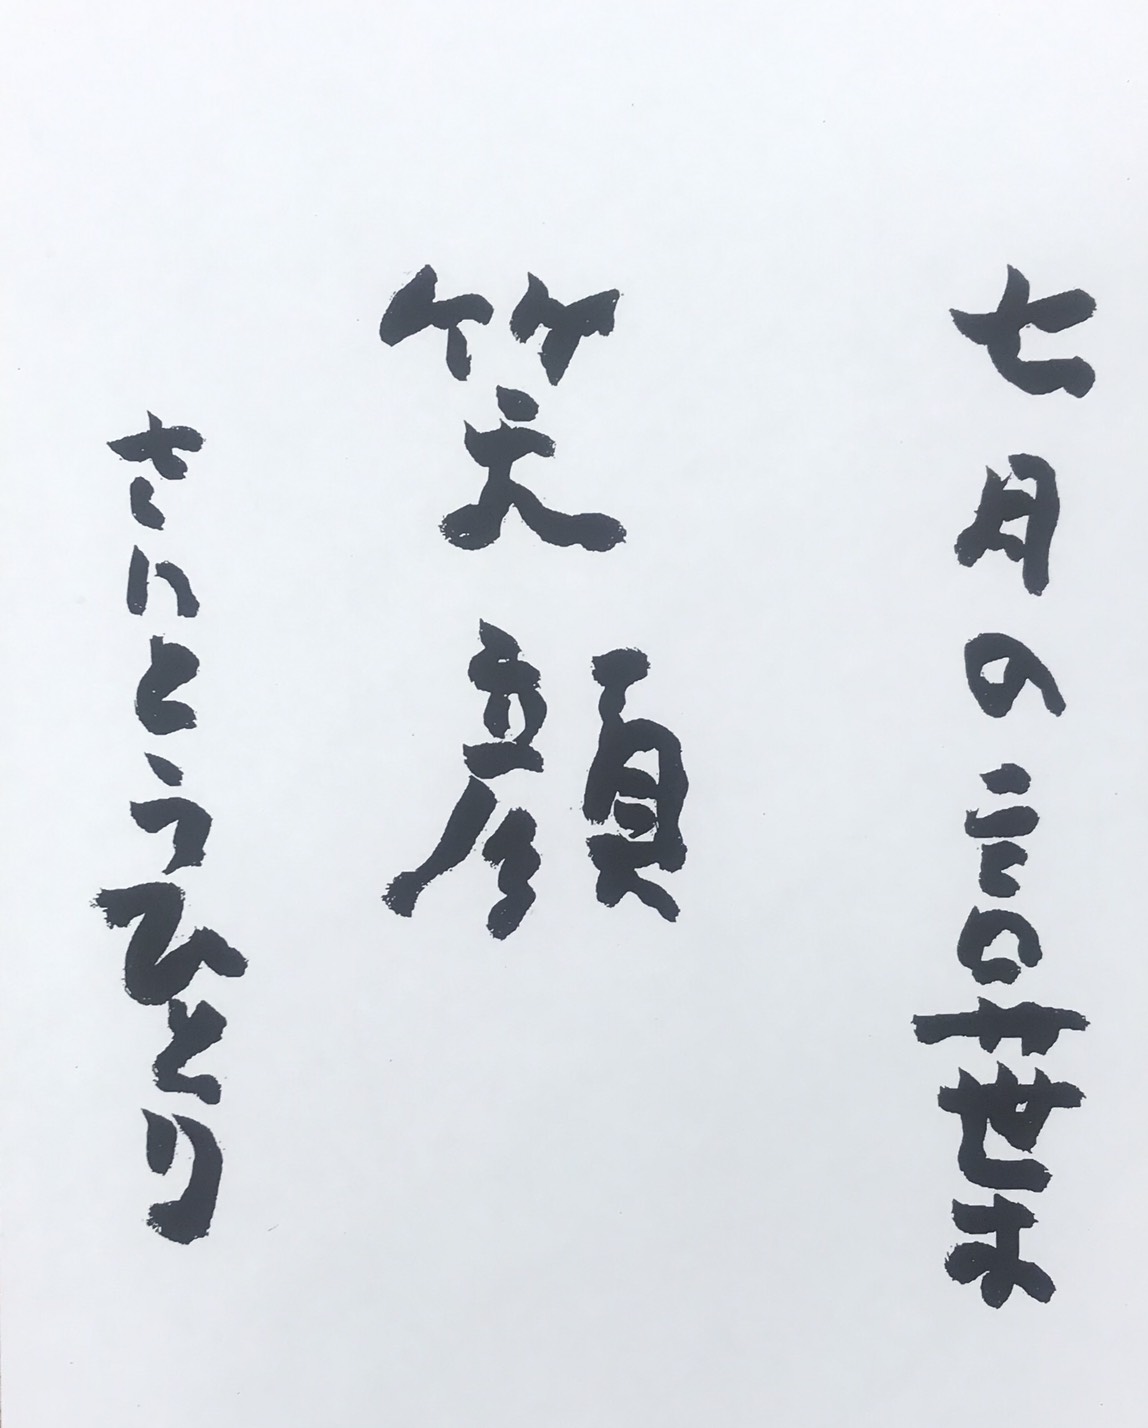 七月の言葉
笑顔
さいとうひとり